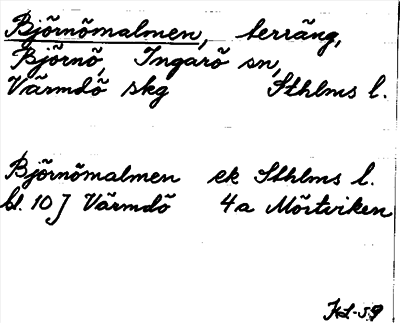 Björnömalmen, terräng,
Björnö, Ingarö sn,
Värmdö skg Sthlms l.
Björnömalmen ek Sthlms l.
bl. 10 J Värmdö 4a Mörtviken